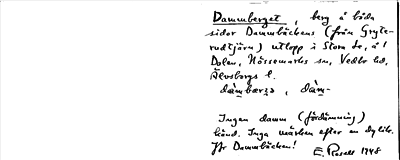 Dammberget, berg å båda
sidor Dammbäckens (från Gryte-
rudtjärn) utlopp i Stora Le, å!
Dolen, Nössemarks sn, Vedbo hd,
Älvsborgs l.
dàmbærjə, dàm-
Ingen damm (fördämning)
känd. Inga märken efter en dylik.
Jfr Dammbäcken!
E. Rosell 1948